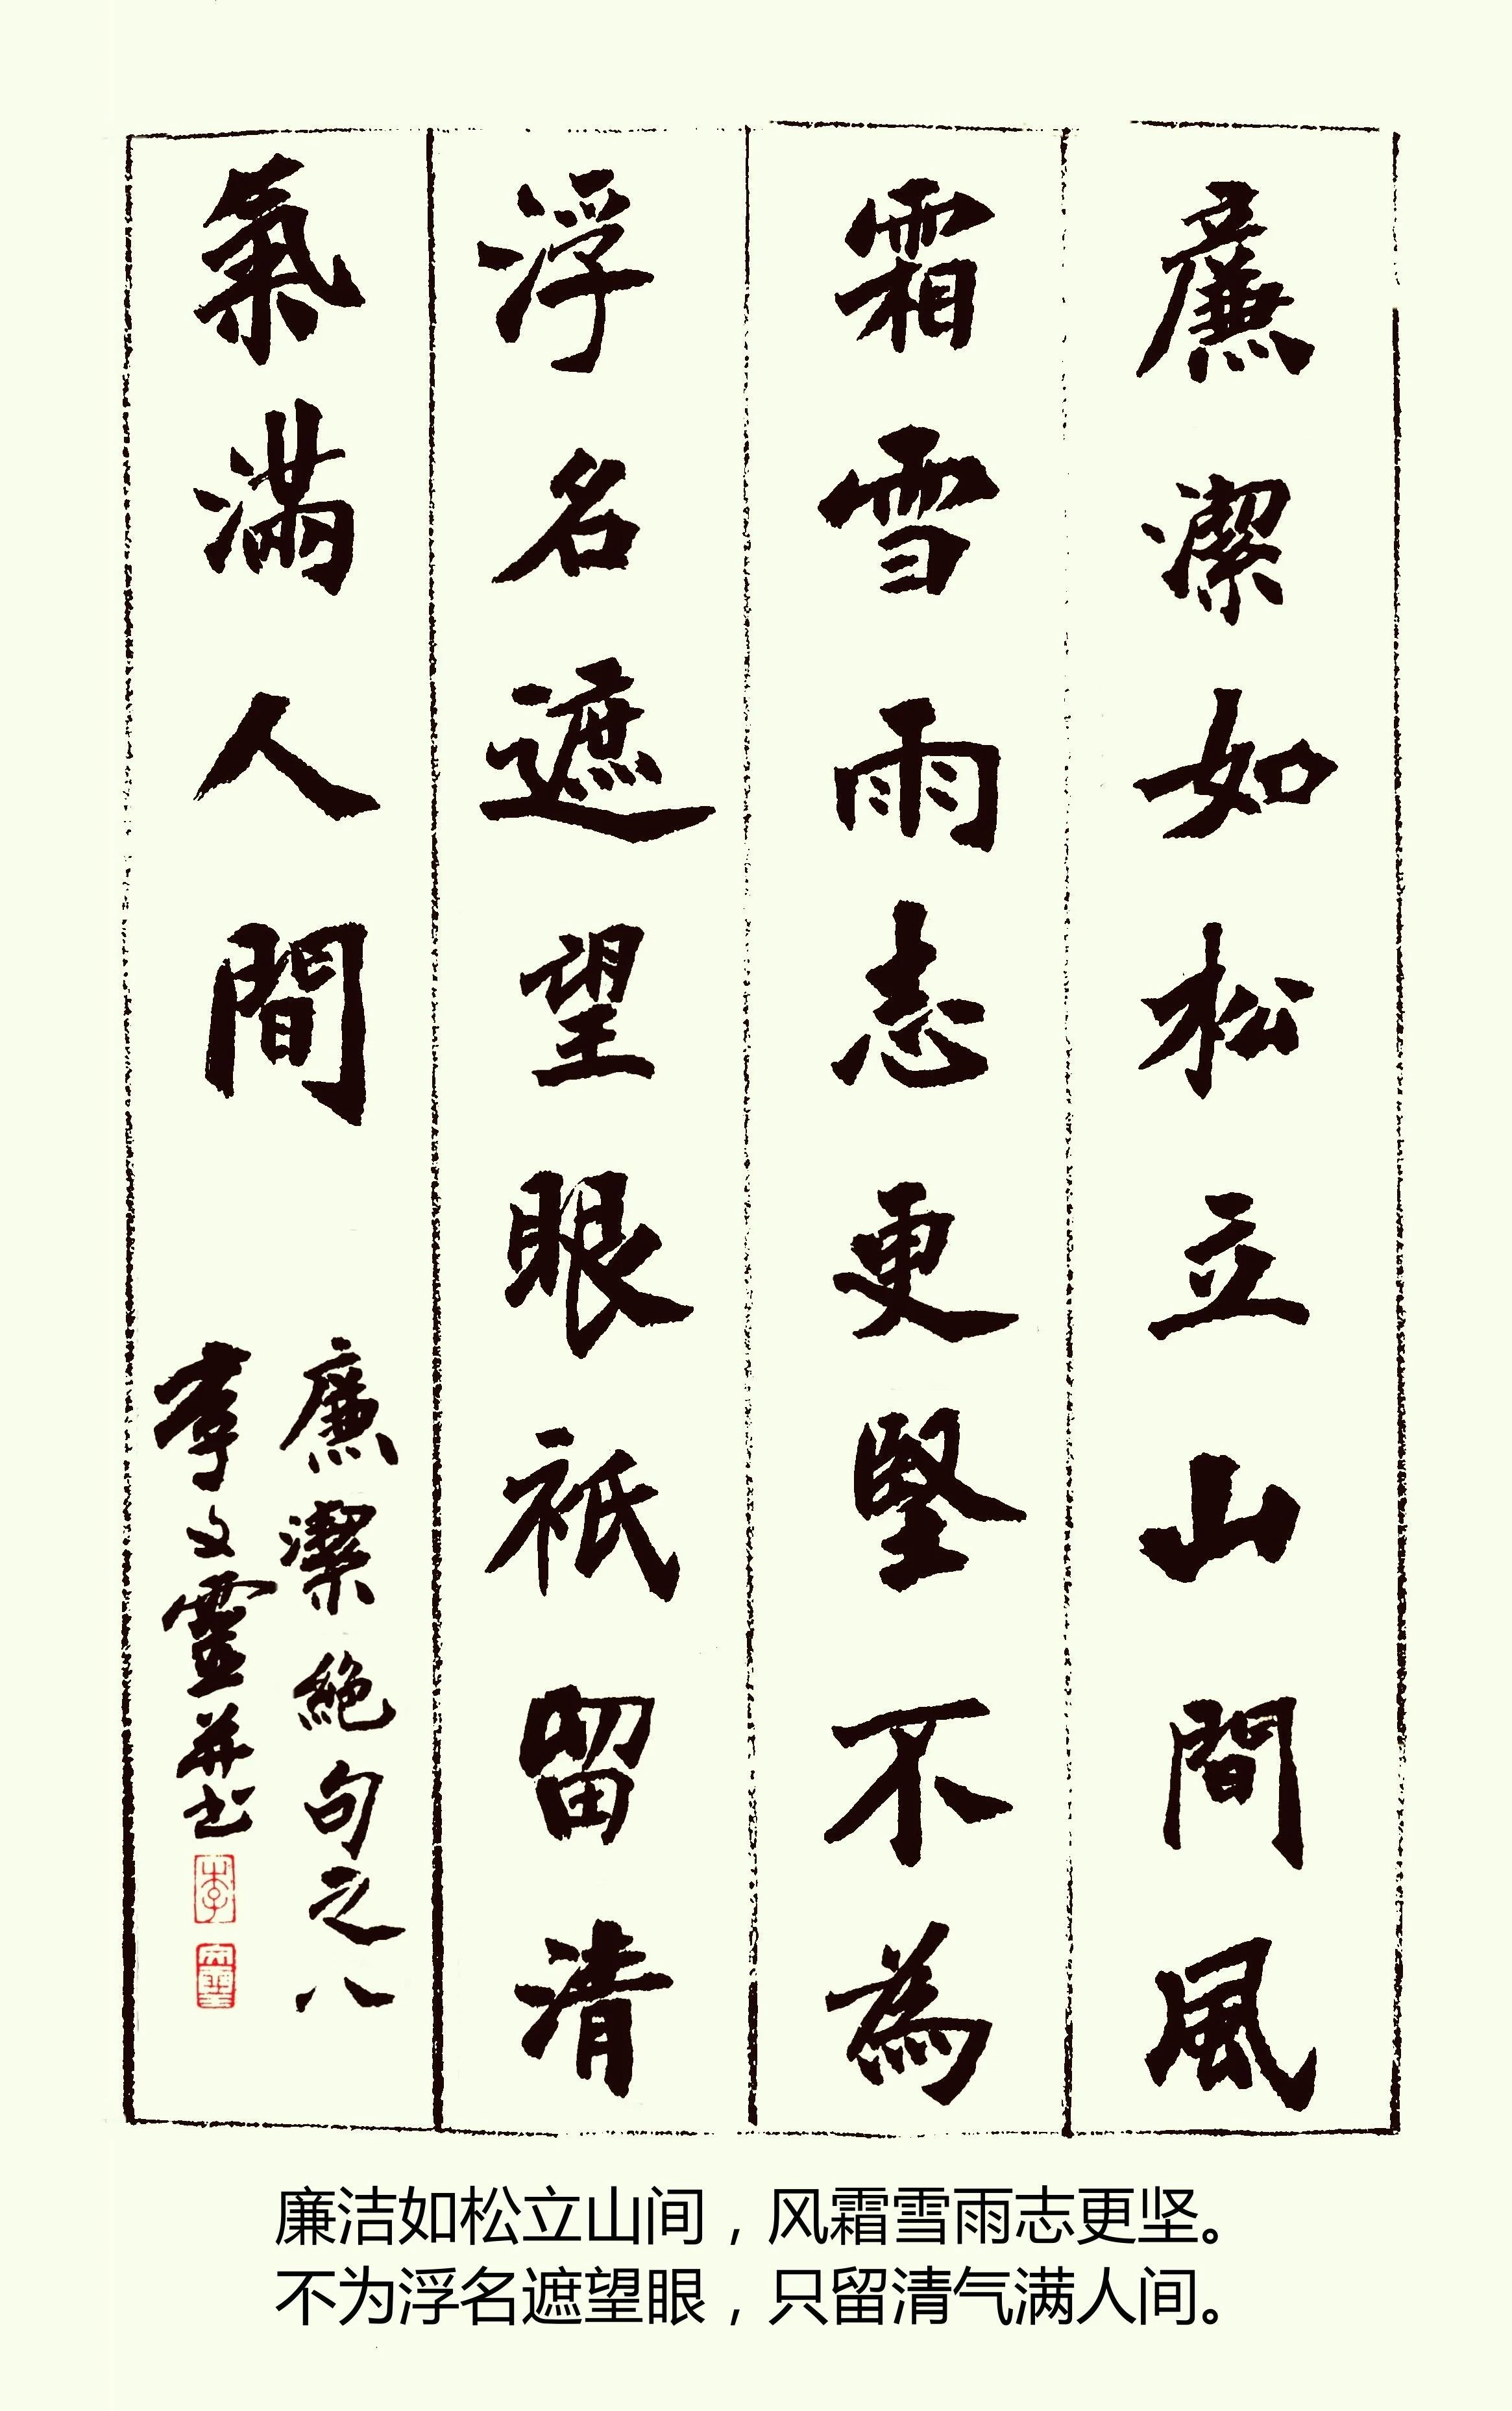 廉潔如松立山間風
霜雪雨志更堅不為
浮名遮望眼祇留清
氣滿人間
廉潔絕句之八
李文靈並书
李
文靈
廉洁如松立山间，风霜雪雨志更坚。
不为浮名遮望眼，只留清气满人间。